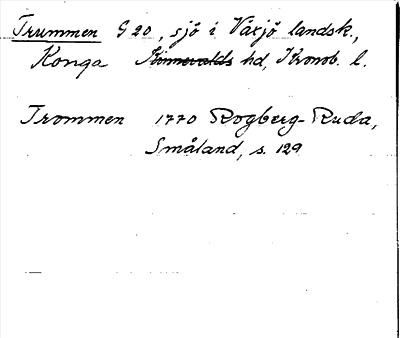 Trummen G 20, sjö i Växjö landsk.,
Konga Kinnevalds hd, Kronob. l.
Trommen 1770 Rogberg-Ruda,
Småland, s. 129